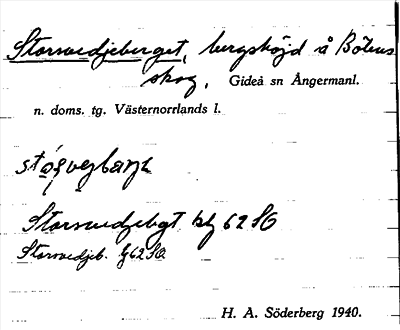 Storsvedjeberget, bergshöjd å Bölens
skog, Gideå sn Ångermanl.
n. doms. tg. Västernorrlands l.
Storsvedjebgt bg 62 SO
Storsvedjeb. G 62 SO
H. A. Söderberg 1940.